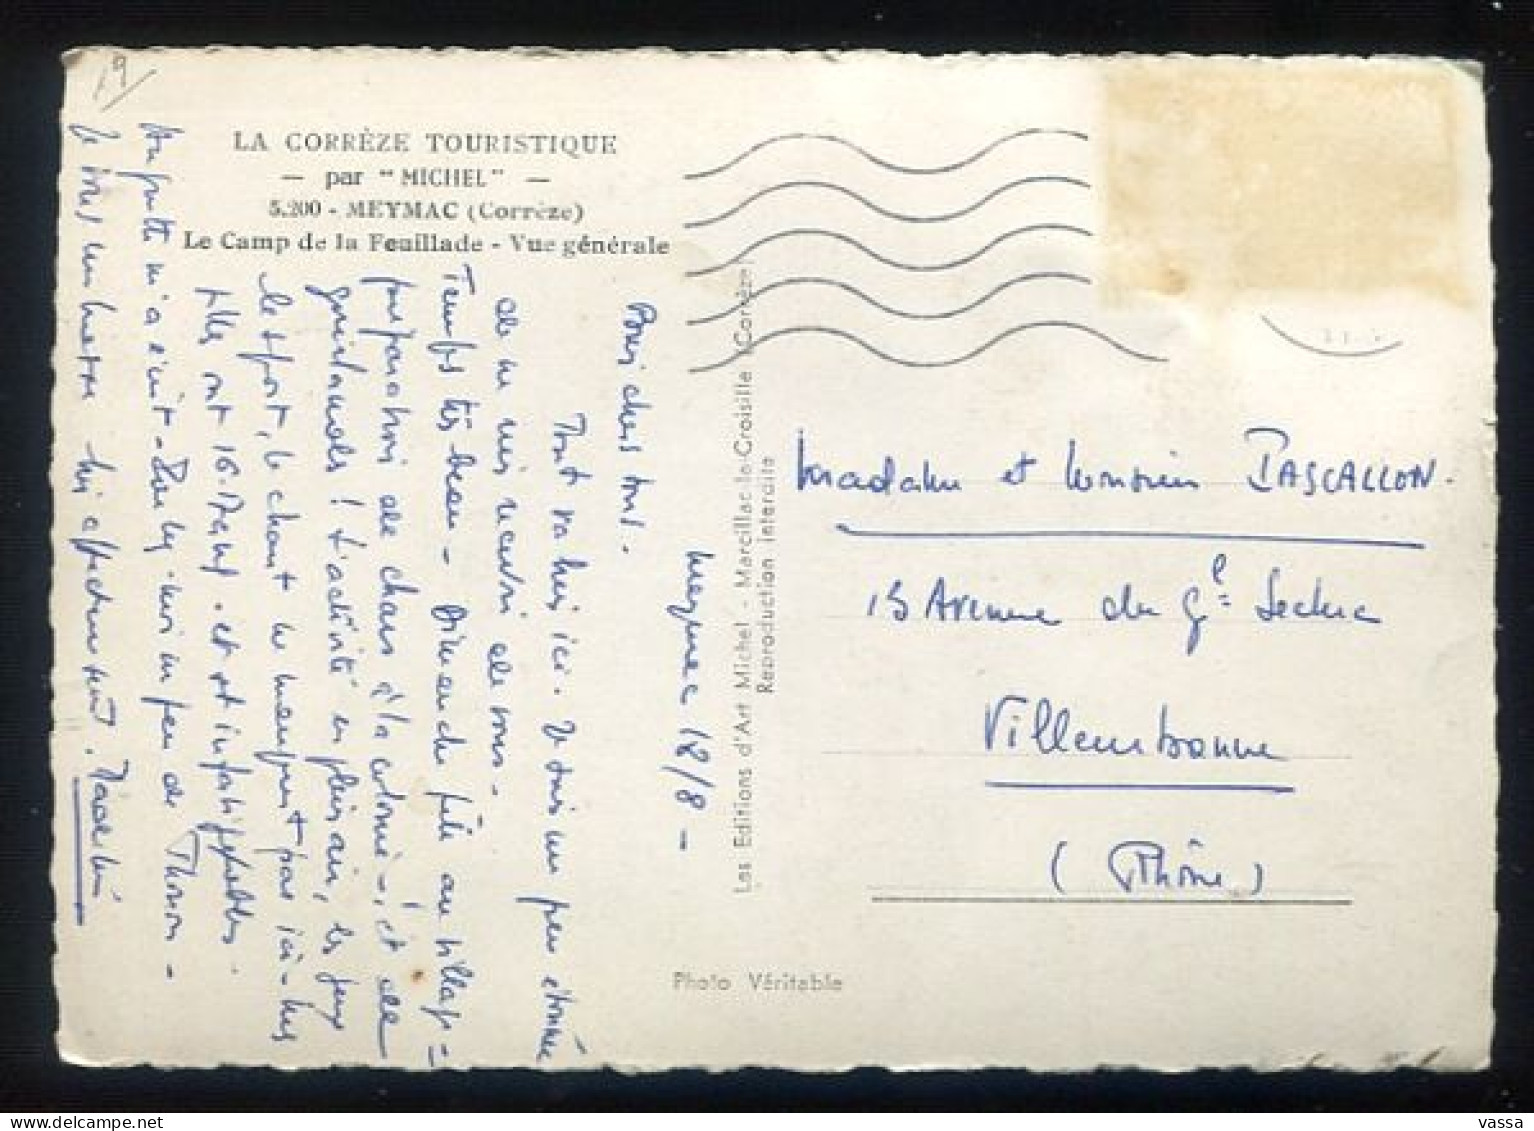 19
LA CORRÈZE TOURISTIQUE
— par "MICHEL" —
5.200 - MEYMAC (Corrèze)
Le Camp de la Feuillade - Vue générale
Meymac 18/8 -
Bien chers tous.
Tout va bien ici. Je suis un peu étonnée
de ne rien de vous -
Temps très beau - Dimanche fête au village =
préparation de chars à la colonie -, et de
! L'activité en plein air, les jeux
le sport, le chant ne manquent pas ici - Les
filles ont 16-17 ans. et sont infatigables.
m'a écrit - un peu de Thonon -
Je vous bien affectueusement.
Les Editions d'Art Michel - Marcillac-la-Croisille (Corrèze)
Reproduction interdite
Photo Véritable
Madame et Monsieur PASCALLON.
15 Avenue du Gl Leclerc
Villeurbanne
(Rhône)
vassa